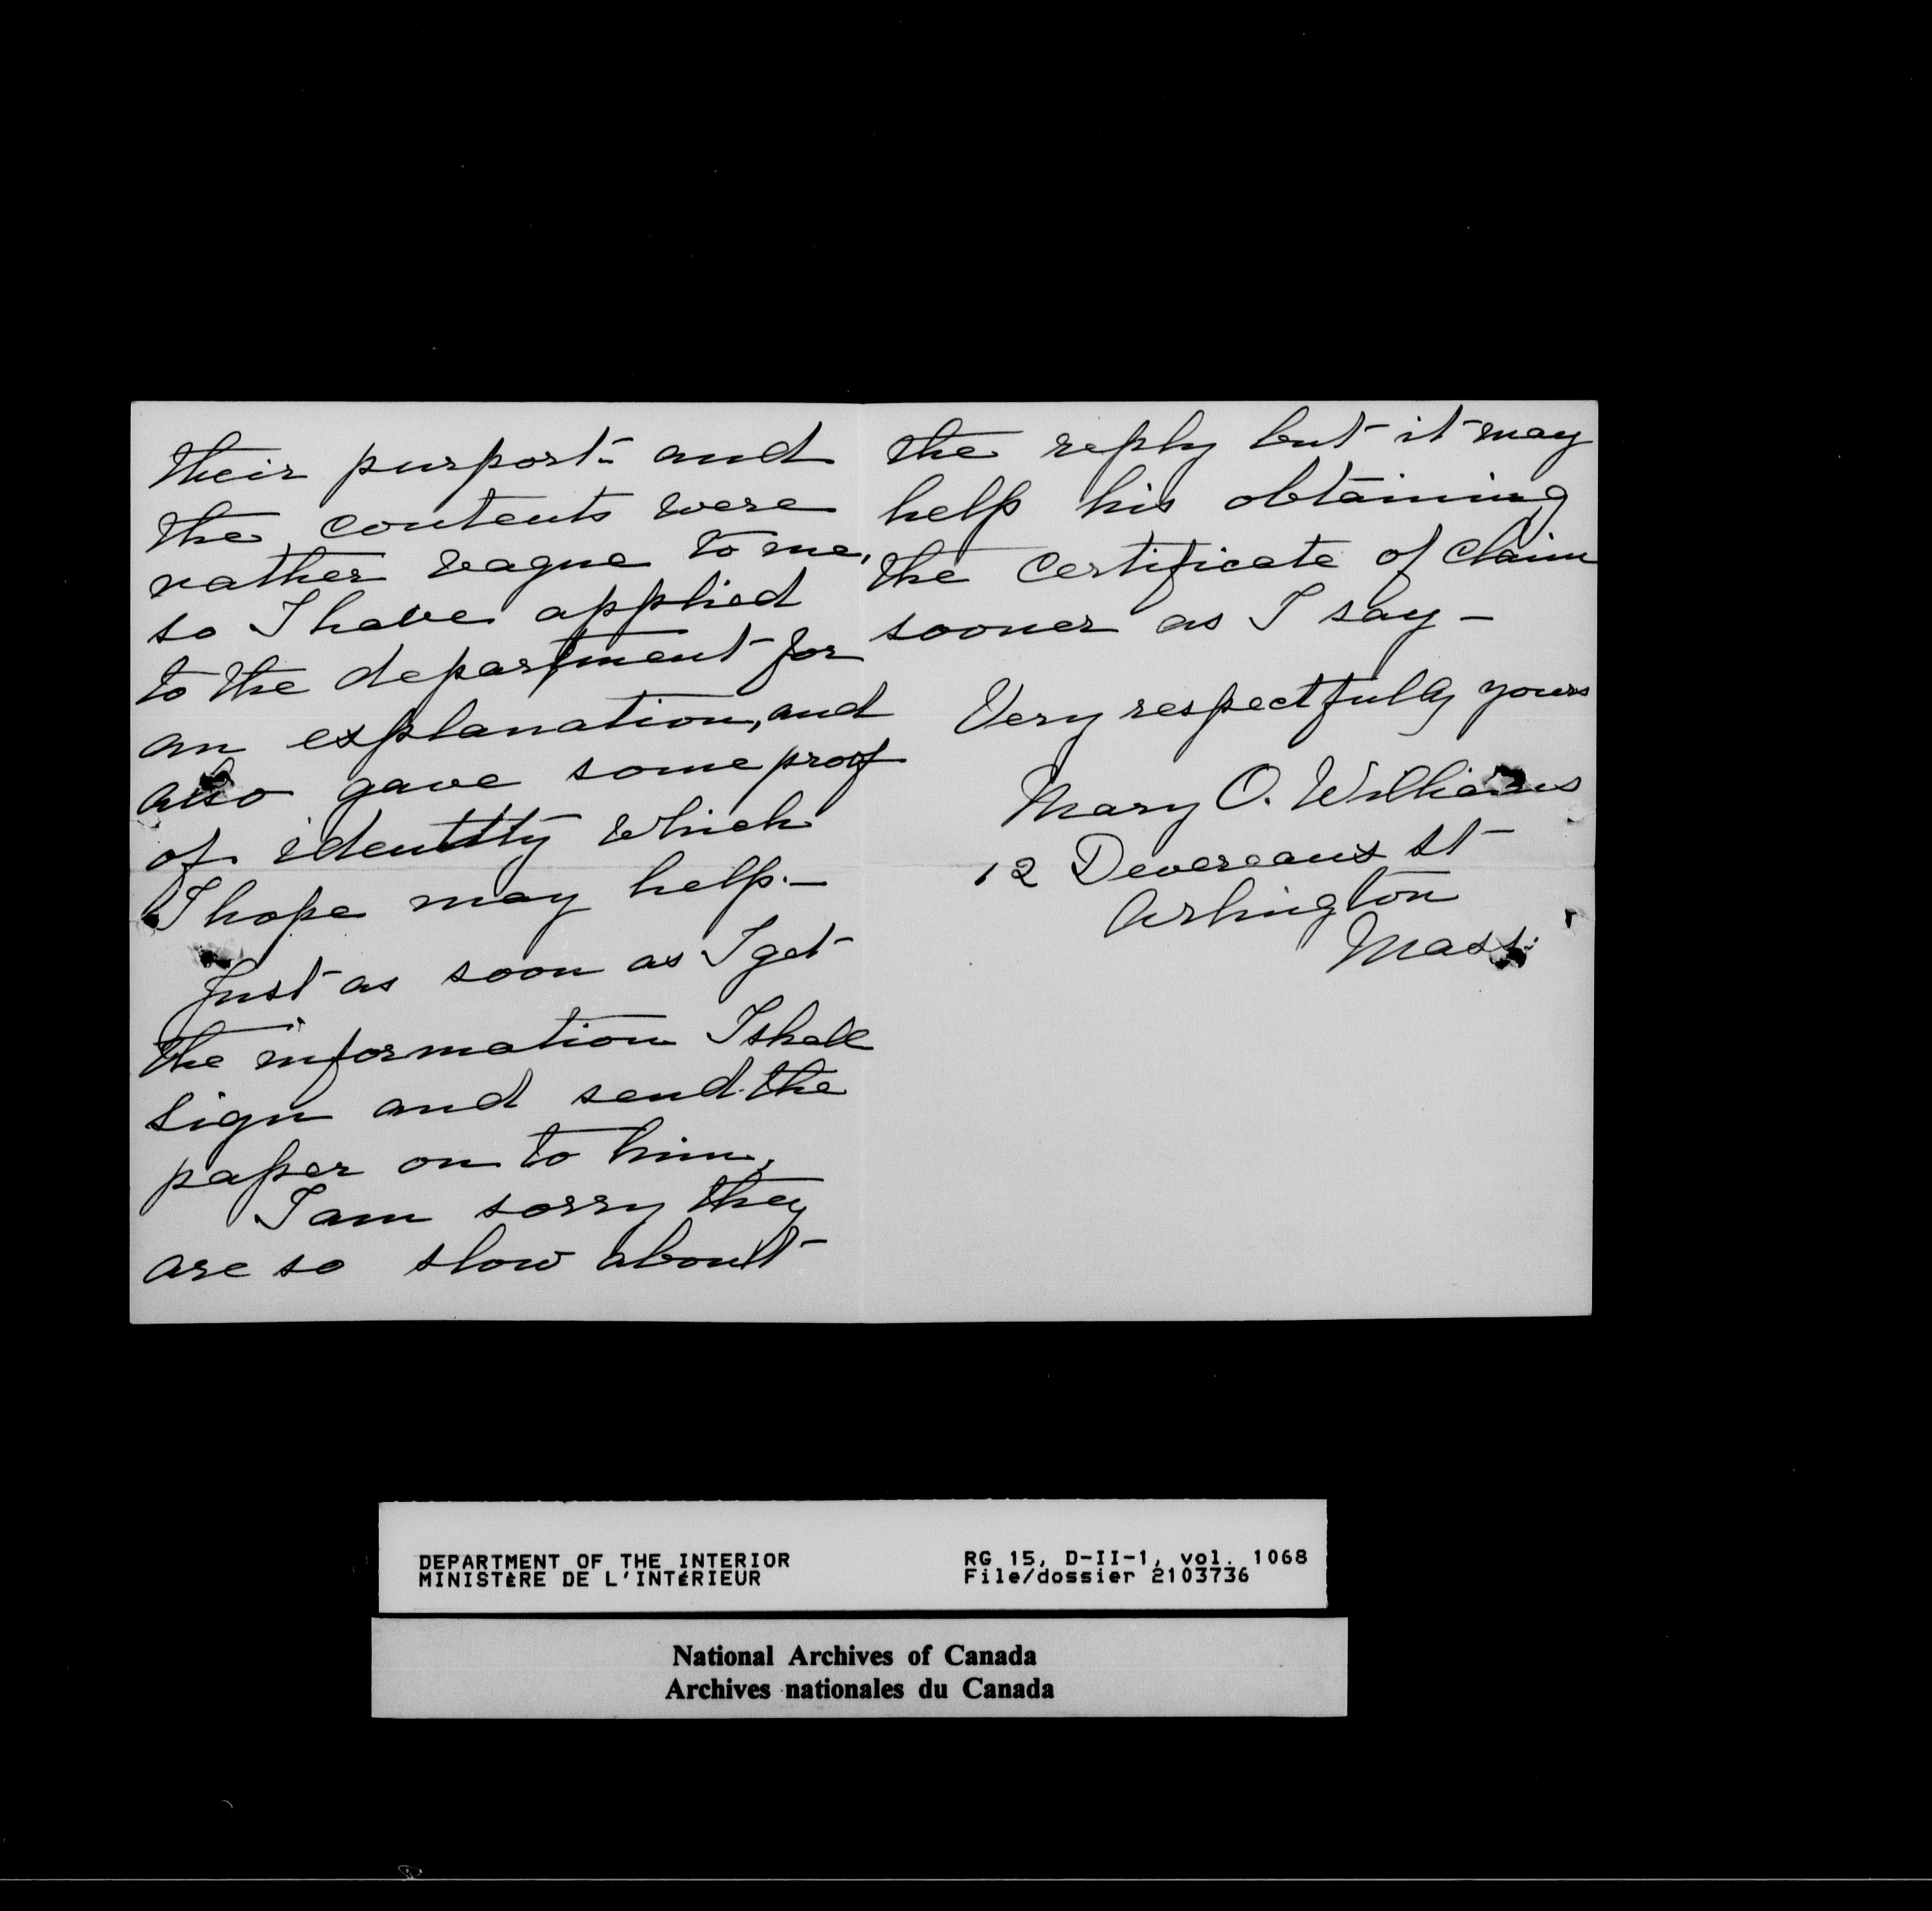 their purport - and
the contents were
rather vague to me,
so I have applied
to the department for
an explanation, and
also gave some proof
of identity which
I hope may help. -
Just as soon as I get
the information I shall
sign and send the
paper on to him,
I am sorry they
are so slow about
the reply but it may
help his obtaining
the certificate of claim
sooner as I say -
Very respectfully yours
Mary O. Williams
12 Devereaux St
Arlington
Mass.
DEPARTMENT OF THE INTERIOR
MINISTÈRE DE L'INTÉRIEUR
RG 15, D-II-1, vol. 1068
File/dossier 2103736
National Archives of Canada
Archives nationales du Canada